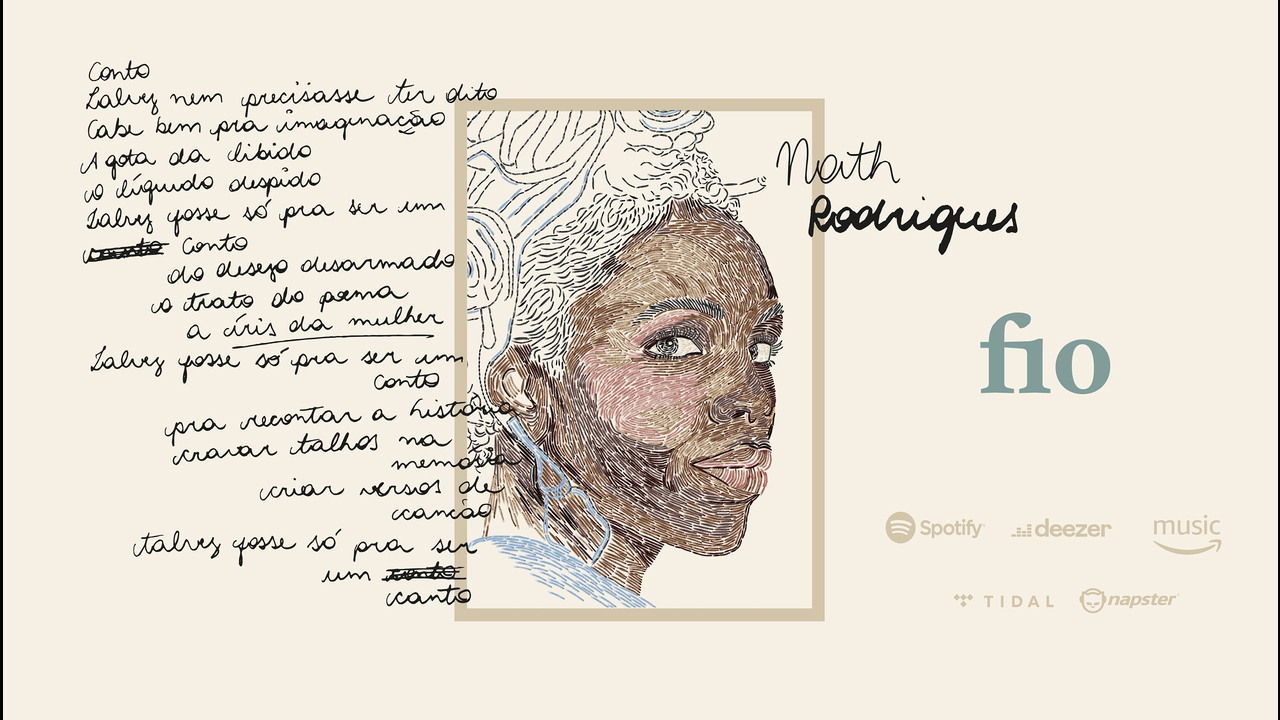 Conto
Talvez nem precisasse ter dito
Cabe bem pra imaginação
A gota da libido
o líquido despido
Talvez fosse só pra ser um
canto Conto
do desejo desarmado
o trato do poema
a íris da mulher
Talvez fosse só pra ser um
conto
pra recontar a história
cravar talhos na
memória
criar versos de
canção
talvez fosse só pra ser
um conto
canto
Nath
Rodrigues
fio
Spotify
deezer
music
TIDAL
napster